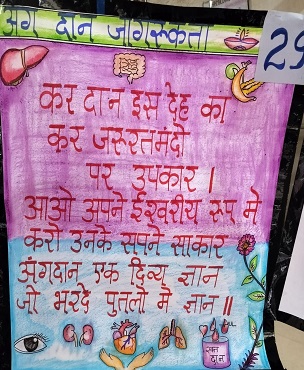 अंग दान जागरूकता
29
कर दान इस देह का
कर जरूरतमंदो
पर उपकार ।
आओ अपने ईश्वरीय रूप मे
करो उनके सपने साकार
अंगदान एक दिव्य ज्ञान
जो भरदे पुतलो मे ज्ञान ॥
रक्त
दान